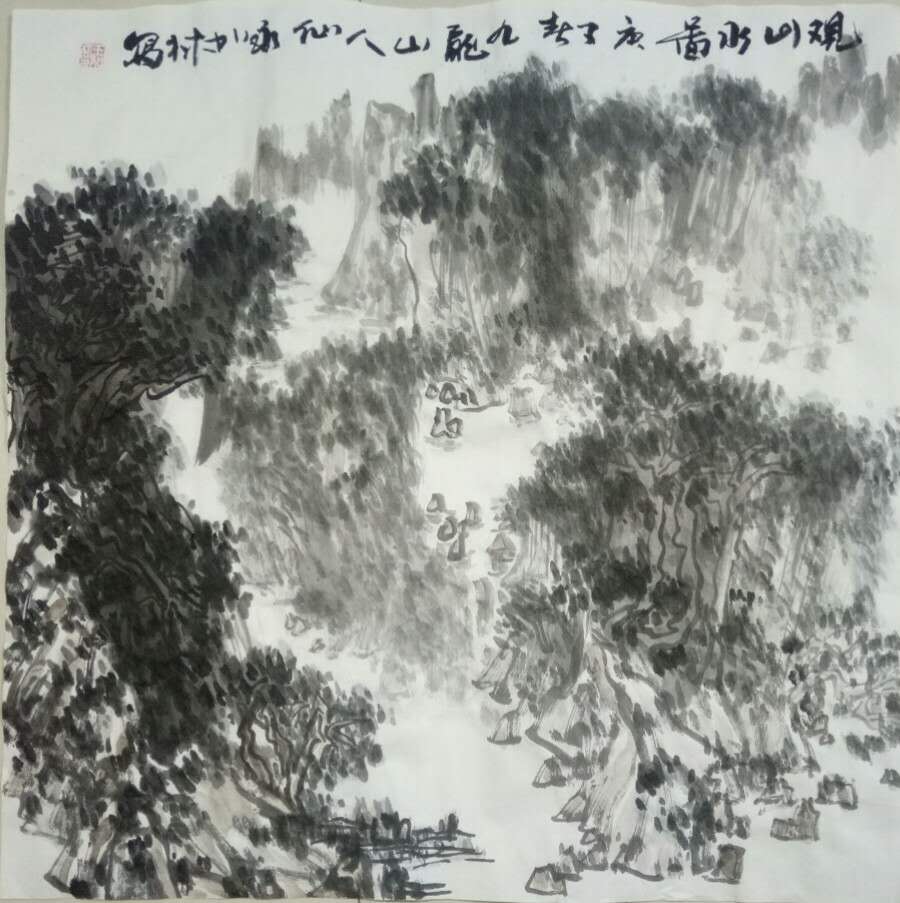 观山水图庚子春九龙山人仙泳于村写